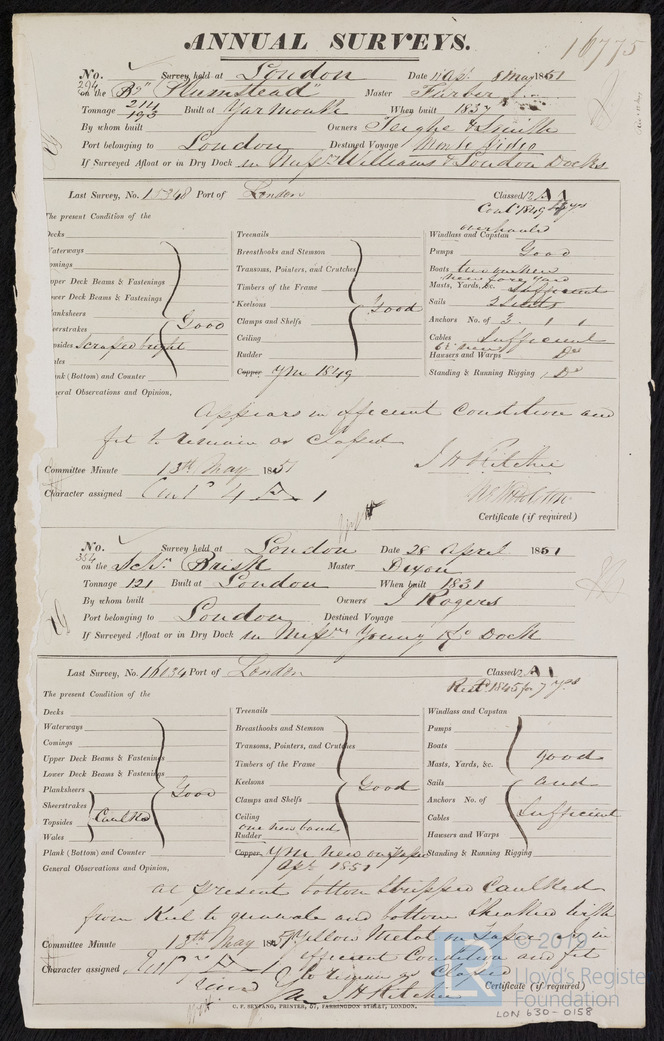 16775
ANNUAL SURVEYS.
No. 294 Survey held at London Date 11 Apl. 8 May 1851
on the Bg "Plumstead" Master Furber
Tonnage 211/193 Built at Yarmouth When built 1837
By whom built Owners Teighe & Smith
Port belonging to London Destined Voyage Monte Video
If Surveyed Afloat or in Dry Dock in Messrs Williams & London Docks
Last Survey, No. 15348 Port of London Classed 12 A 1
Contd 1849 yrs
The present Condition of the
Decks
Waterways
Comings
Upper Deck Beams & Fastenings
Lower Deck Beams & Fastenings
Planksheers
Sheerstrakes Good
Topsides scraped bright
Wales
Plank (Bottom) and Counter
General Observations and Opinion,
Treenails
Breasthooks and Stemson
Transoms, Pointers, and Crutches
Timbers of the Frame
Keelsons Good
Clamps and Shelfs
Ceiling
Rudder
Copper YM 1849
overhauled
Windlass and Capstan
Pumps Good
Boats two one new
new fore yard
Masts, Yards, &c. Sufficient
Sails 2 Suits
Anchors No. of 3, 1, 1
Cables Sufficient
Hawsers and Warps Do
Standing & Running Rigging Do
Appears in efficient condition and
fit to remain as Classed
Committee Minute 13th May 1851 J H Ritchie
Character assigned Contd 4 A 1
Certificate (if required)
No. 354 Survey held at London Date 28 April 1851
on the Schr. Brisk Master Dixon
Tonnage 121 Built at London When built 1831
By whom built Owners J Rogers
Port belonging to London Destined Voyage
If Surveyed Afloat or in Dry Dock in Messrs Young & Co Dock
Last Survey, No. 16034 Port of London Classed 12 A 1
Restd 1845 for 7 yrs
The present Condition of the
Decks
Waterways
Comings
Upper Deck Beams & Fastenings
Lower Deck Beams & Fastenings
Planksheers Good
Sheerstrakes
Topsides Caulked
Wales
Plank (Bottom) and Counter
General Observations and Opinion,
Treenails
Breasthooks and Stemson
Transoms, Pointers, and Crutches
Timbers of the Frame
Keelsons Good
Clamps and Shelfs
Ceiling
one new band
Rudder
Copper YM new on paper
Apl 1851
Windlass and Capstan
Pumps
Boats good
Masts, Yards, &c.
Sails and
Anchors No. of
Cables Sufficient
Hawsers and Warps
Standing & Running Rigging
at present bottom stripped Caulked
from Keel to gunwale and bottom sheathed with
Yellow Metal on paper is in
efficient Condition and fit
to remain as Classed
Committee Minute 13th May 1851
Character assigned A 1
J H Ritchie
Certificate (if required)
C. F. SEYFANG, PRINTER, 57, FARRINGDON STREET, LONDON.
© 2019
Lloyd's Register
Foundation
LON 630-0158